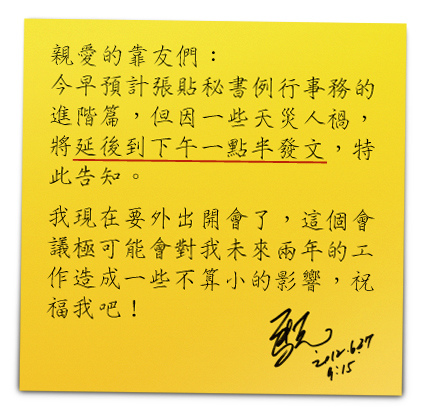 親愛的靠友們：
今早預計張貼秘書例行事務的
進階篇，但因一些天災人禍，
將延後到下午一點半發文，特
此告知。
我現在要外出開會了，這個會
議極可能會對我未來兩年的工
作造成一些不算小的影響，祝
福我吧！
2012.6.27
9:15